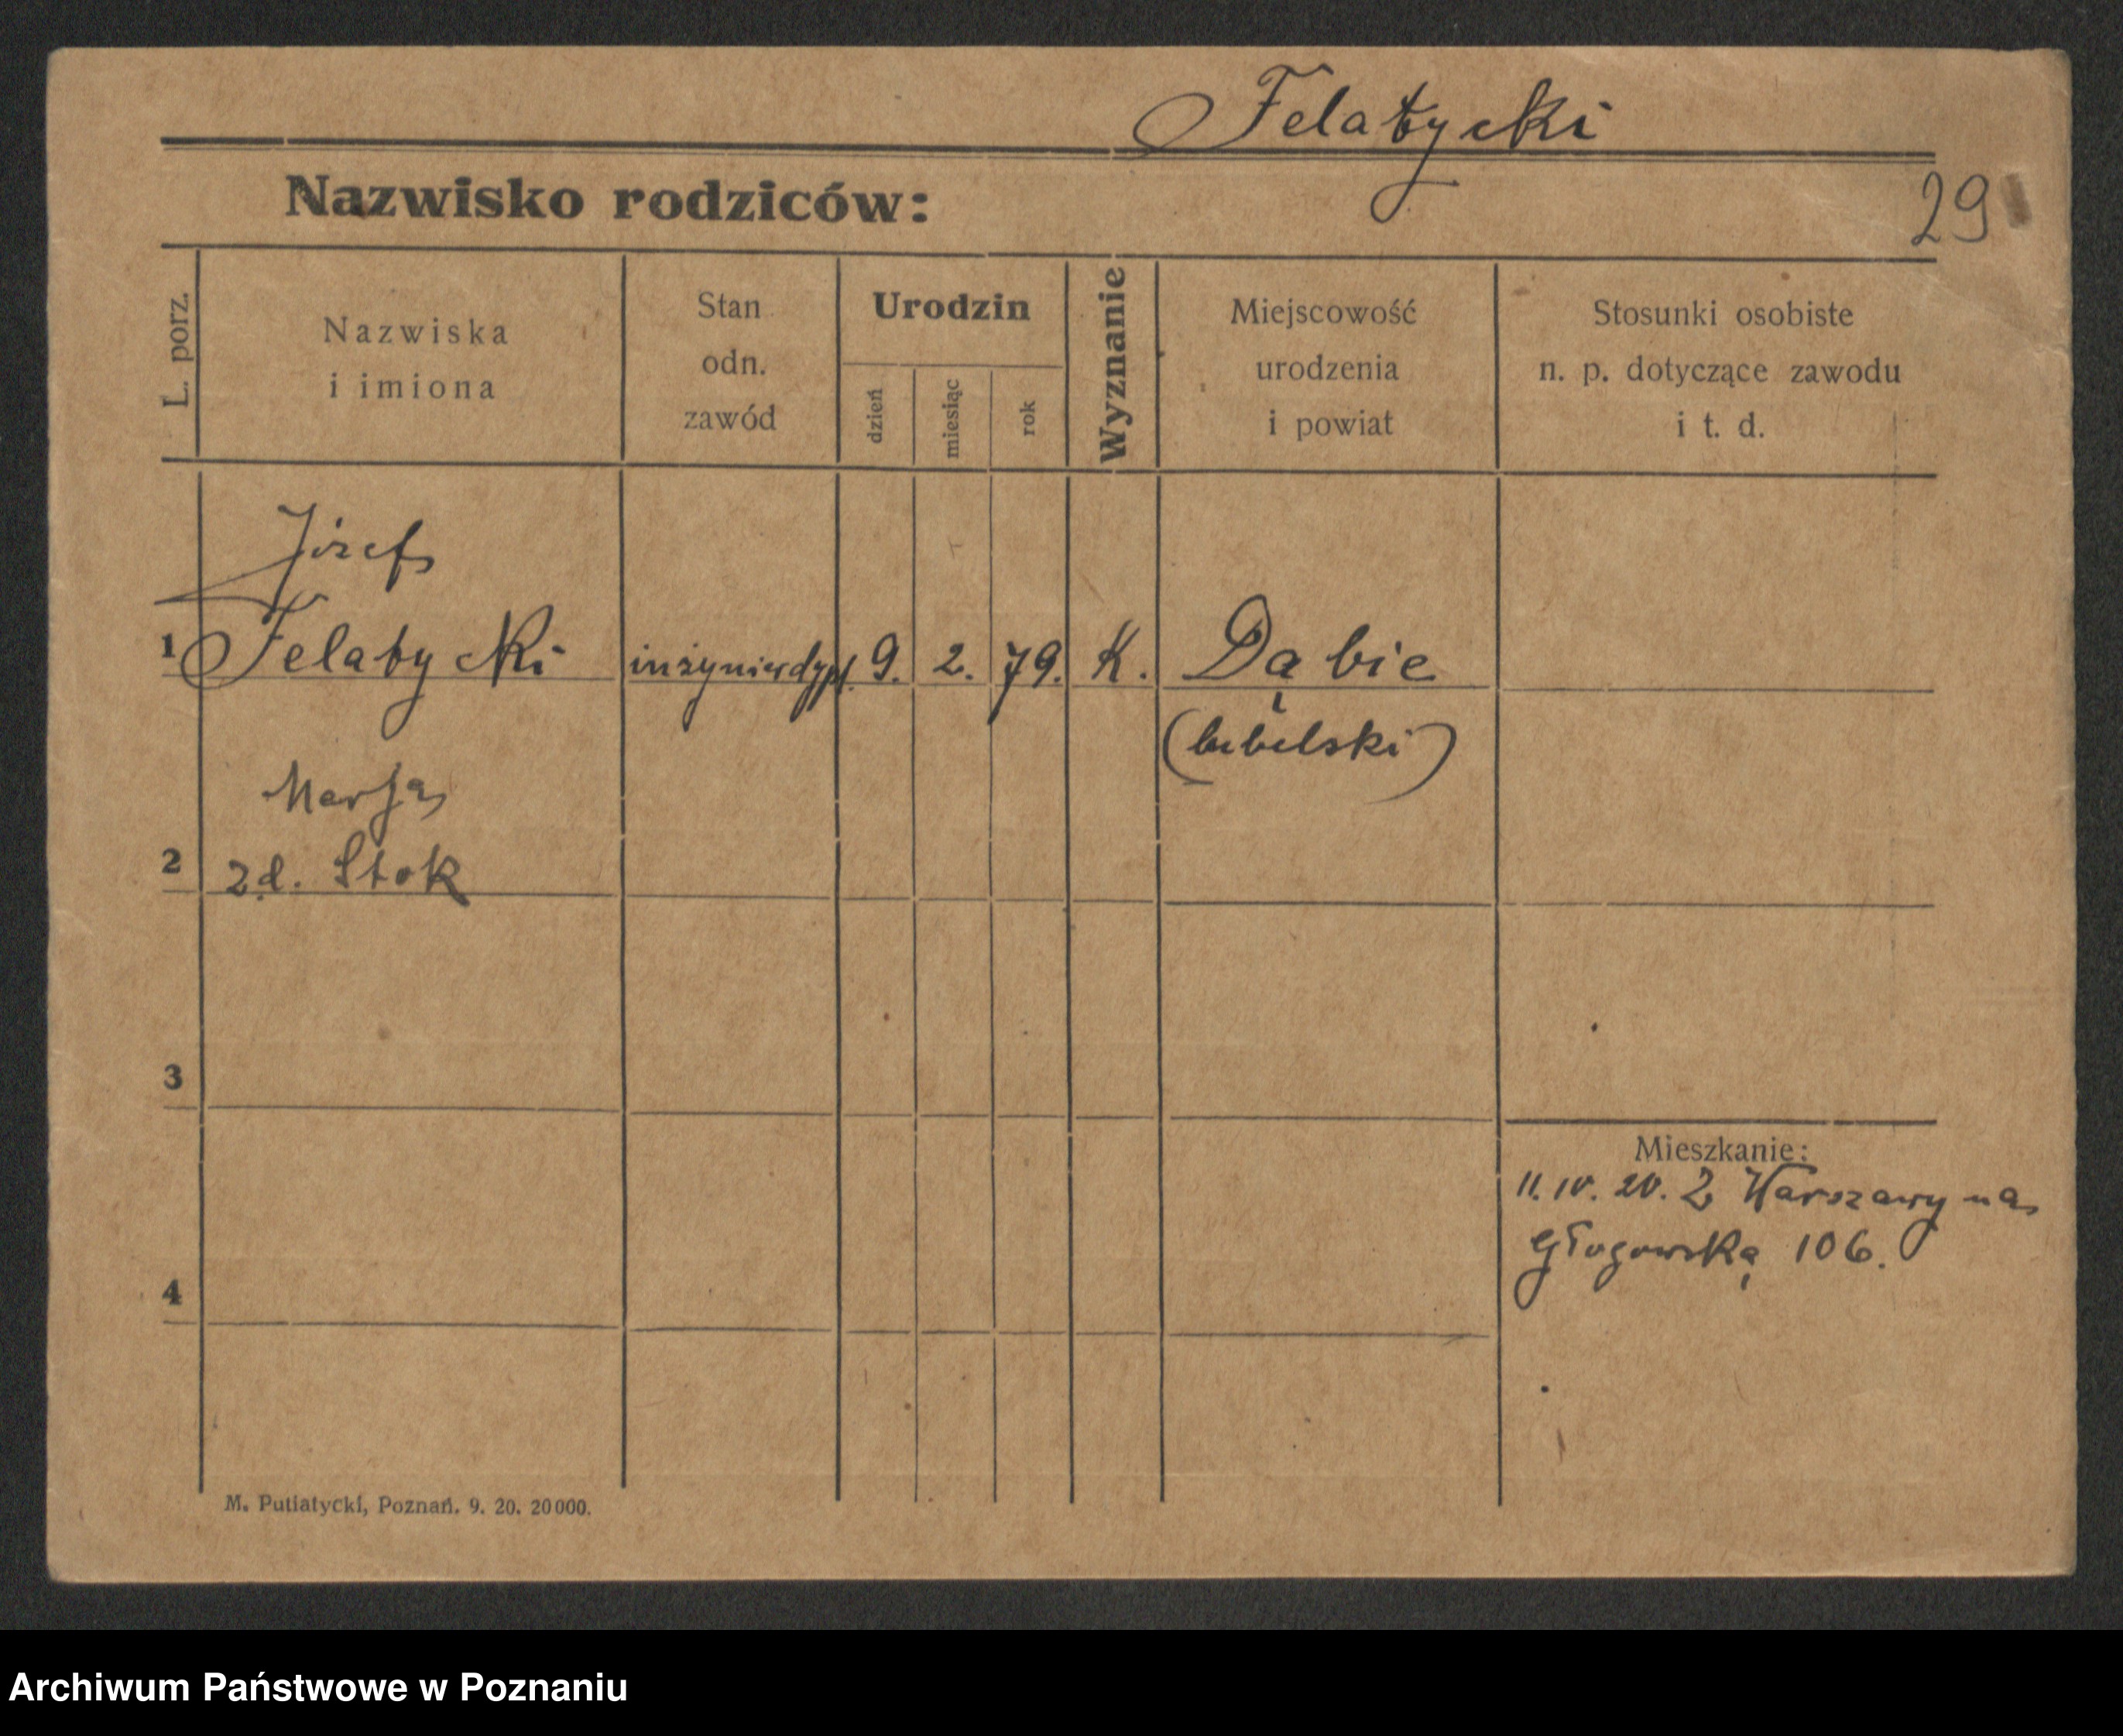 Felatycki
Nazwisko rodziców:
29
L. porz.
Nazwiska
i imiona
Stan
odn.
zawód
Urodzin
dzień
miesiąc
rok
Wyznanie
Miejscowość
urodzenia
i powiat
Stosunki osobiste
n. p. dotyczące zawodu
i t. d.
Józef
1 Felatycki inżynier dypl. 9. 2. 79. K. Dąbie
(lubelski)
Marja
2 zd. Stok
3
Mieszkanie:
11. IV. 20. Z Warszawy na
Głogowską 106.
4
M. Putiatycki, Poznań. 9. 20. 20000.
Archiwum Państwowe w Poznaniu